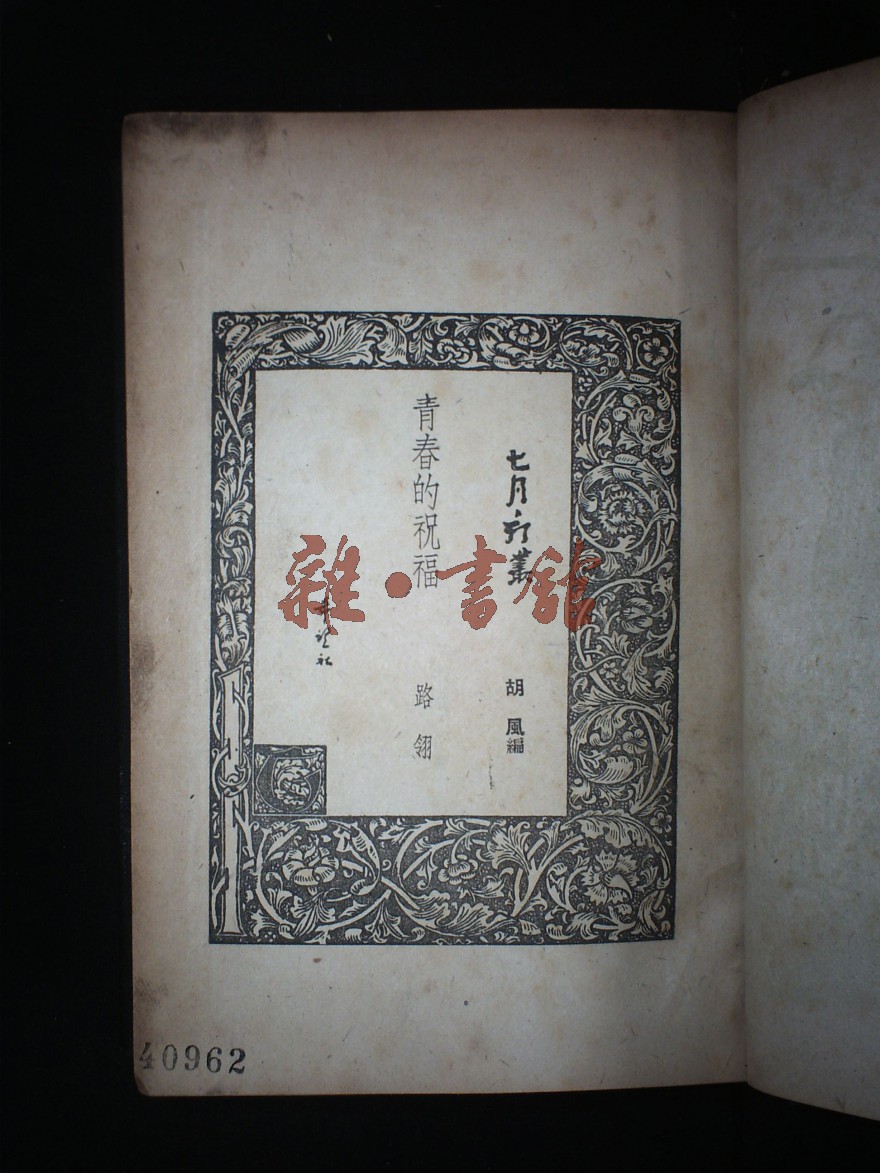 七月新叢
胡風編
青春的祝福
路翎
希望社
雜·書館
40962